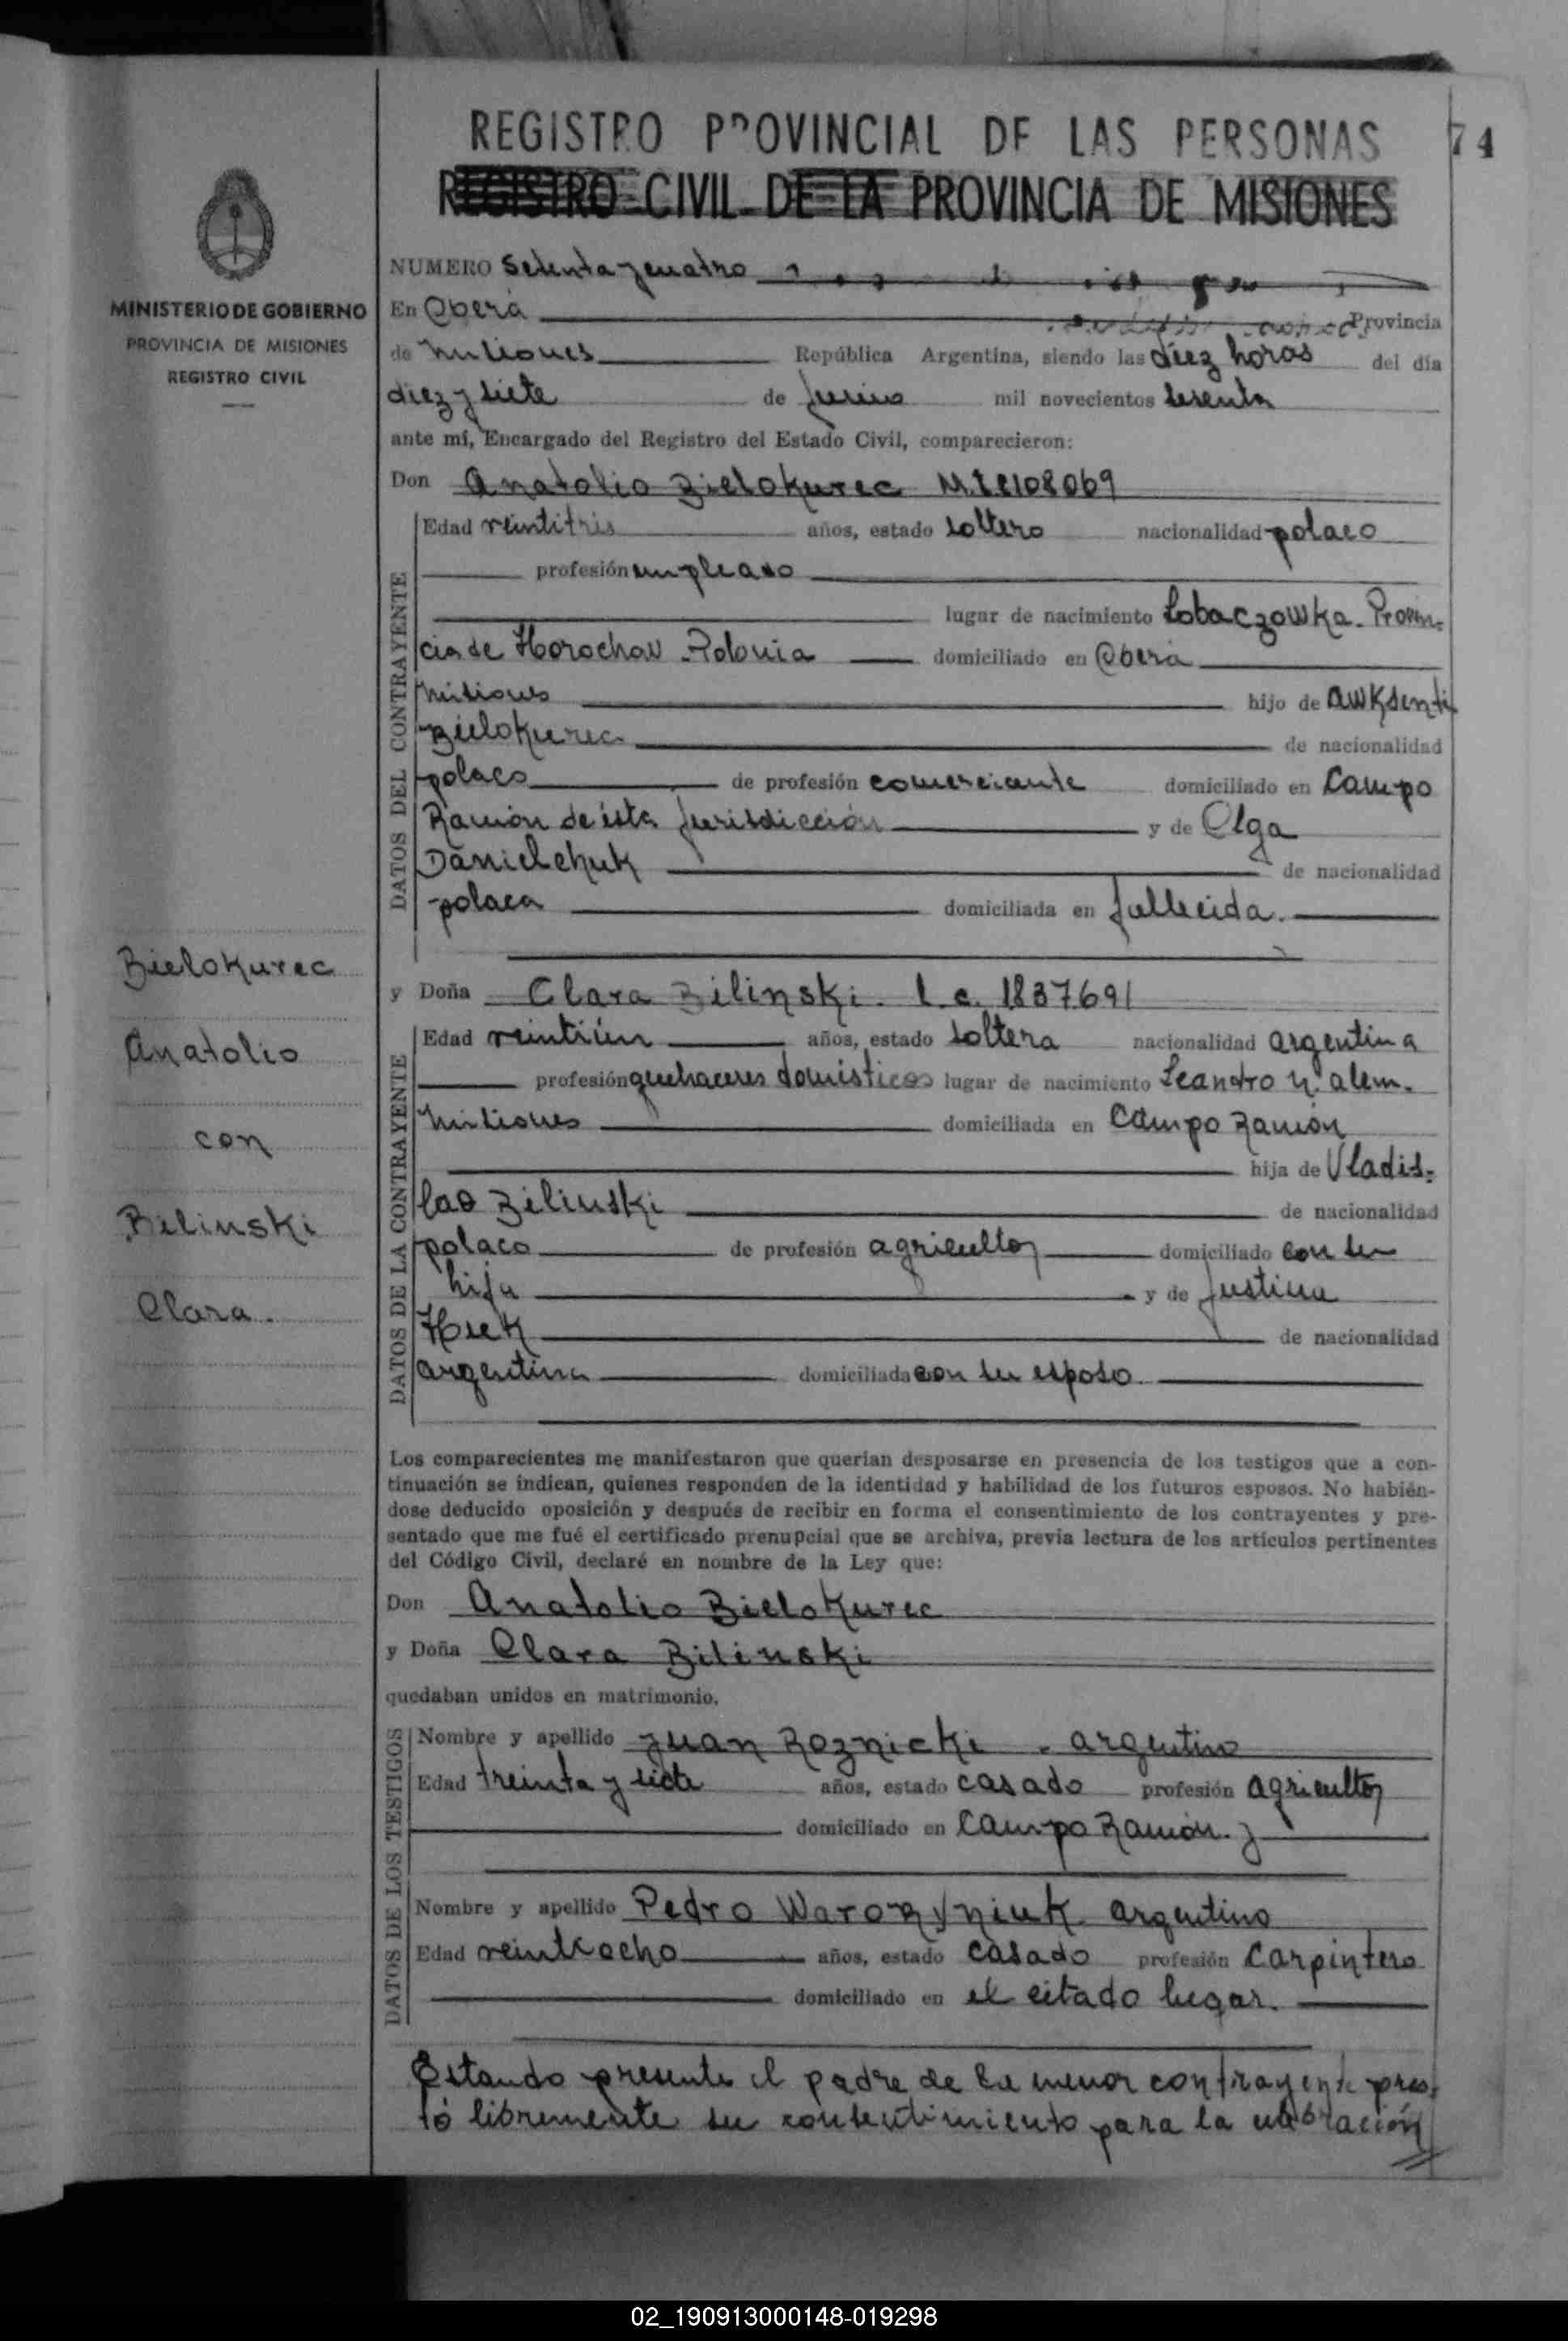 REGISTRO PROVINCIAL DE LAS PERSONAS
74
REGISTRO CIVIL DE LA PROVINCIA DE MISIONES
MINISTERIO DE GOBIERNO
PROVINCIA DE MISIONES
REGISTRO CIVIL
NUMERO Setenta y cuatro
En Oberá Provincia
de Misiones República Argentina, siendo las diez horas del día
diez y siete de Junio mil novecientos sesenta
ante mí, Encargado del Registro del Estado Civil, comparecieron:
Don Anatolio Bielokurec
Edad veintitrés años, estado soltero nacionalidad polaco
profesión empleado
lugar de nacimiento Lobaczowka. Provin-
cia de Horochow Polonia domiciliado en Oberá
Misiones hijo de Awksenti
Bielokurec de nacionalidad
polaco de profesión comerciante domiciliado en Campo
Ramón de ésta Jurisdicción y de Olga
Danielchuk de nacionalidad
polaca domiciliada en fallecida.
y Doña Clara Bilinski. L.c. 1837691
Edad veintiún años, estado soltera nacionalidad argentina
profesión quehaceres domésticos lugar de nacimiento Leandro N. Alem.
Misiones domiciliada en Campo Ramón
hija de Vladis-
lao Bilinski de nacionalidad
polaco de profesión agricultor domiciliado con su
hija y de Justina
de nacionalidad
argentina domiciliada con su esposo.
DATOS DEL CONTRAYENTE
DATOS DE LA CONTRAYENTE
Bielokurec
Anatolio
con
Bilinski
Clara.
Los comparecientes me manifestaron que querían desposarse en presencia de los testigos que a con-
tinuación se indican, quienes responden de la identidad y habilidad de los futuros esposos. No habién-
dose deducido oposición y después de recibir en forma el consentimiento de los contrayentes y pre-
sentado que me fué el certificado prenupcial que se archiva, previa lectura de los artículos pertinentes
del Código Civil, declaré en nombre de la Ley que:
Don Anatolio Bielokurec
y Doña Clara Bilinski
quedaban unidos en matrimonio.
DATOS DE LOS TESTIGOS
Nombre y apellido Juan Roznicki - argentino
Edad treinta y siete años, estado casado profesión agricultor
domiciliado en Campo Ramón. y
Nombre y apellido Pedro argentino
Edad veintiocho años, estado casado profesión carpintero
domiciliado en el citado lugar.
Estando presente el padre de la menor contrayente pres-
tó libremente su consentimiento para la celebración
02_190913000148-019298